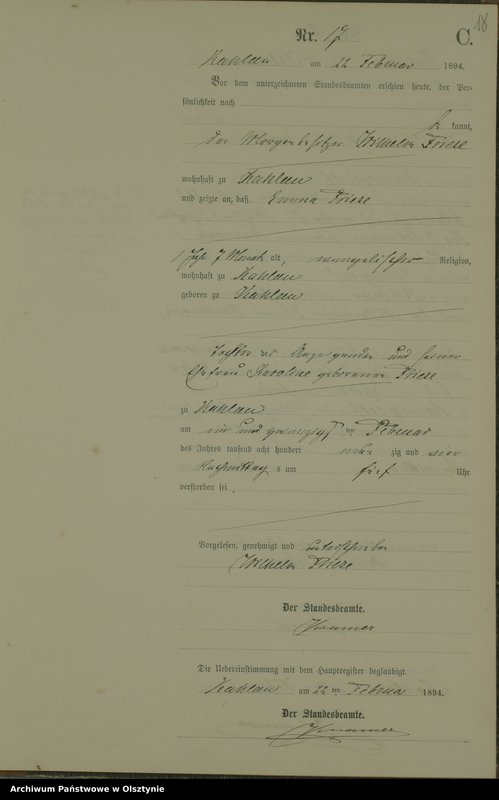 18
Nr. 17
C.
Kahlau am 22 Februar 1894.
Vor dem unterzeichneten Standesbeamten erschien heute, der Per-
sönlichkeit nach
be kannt,
der Wilhelm Friese
wohnhaft zu Kahlau
und zeigte an, daß Emma Friese
1 Jahr 7 Monat alt, evangelischer Religion,
wohnhaft zu Kahlau
geboren zu Kahlau
Tochter des Anzeigenden und seiner
Ehefrau Karoline geborenen Friese
zu Kahlau
am ein und zwanzigsten Februar
des Jahres tausend acht hundert neun zig und vier
Nachmittag s um fünf Uhr
verstorben sei.
Vorgelesen, genehmigt und unterschrieben
Wilhelm Friese
Der Standesbeamte.
Die Uebereinstimmung mit dem Hauptregister beglaubigt.
Kahlau am 22 ten Februar 1894.
Der Standesbeamte.
Archiwum Państwowe w Olsztynie